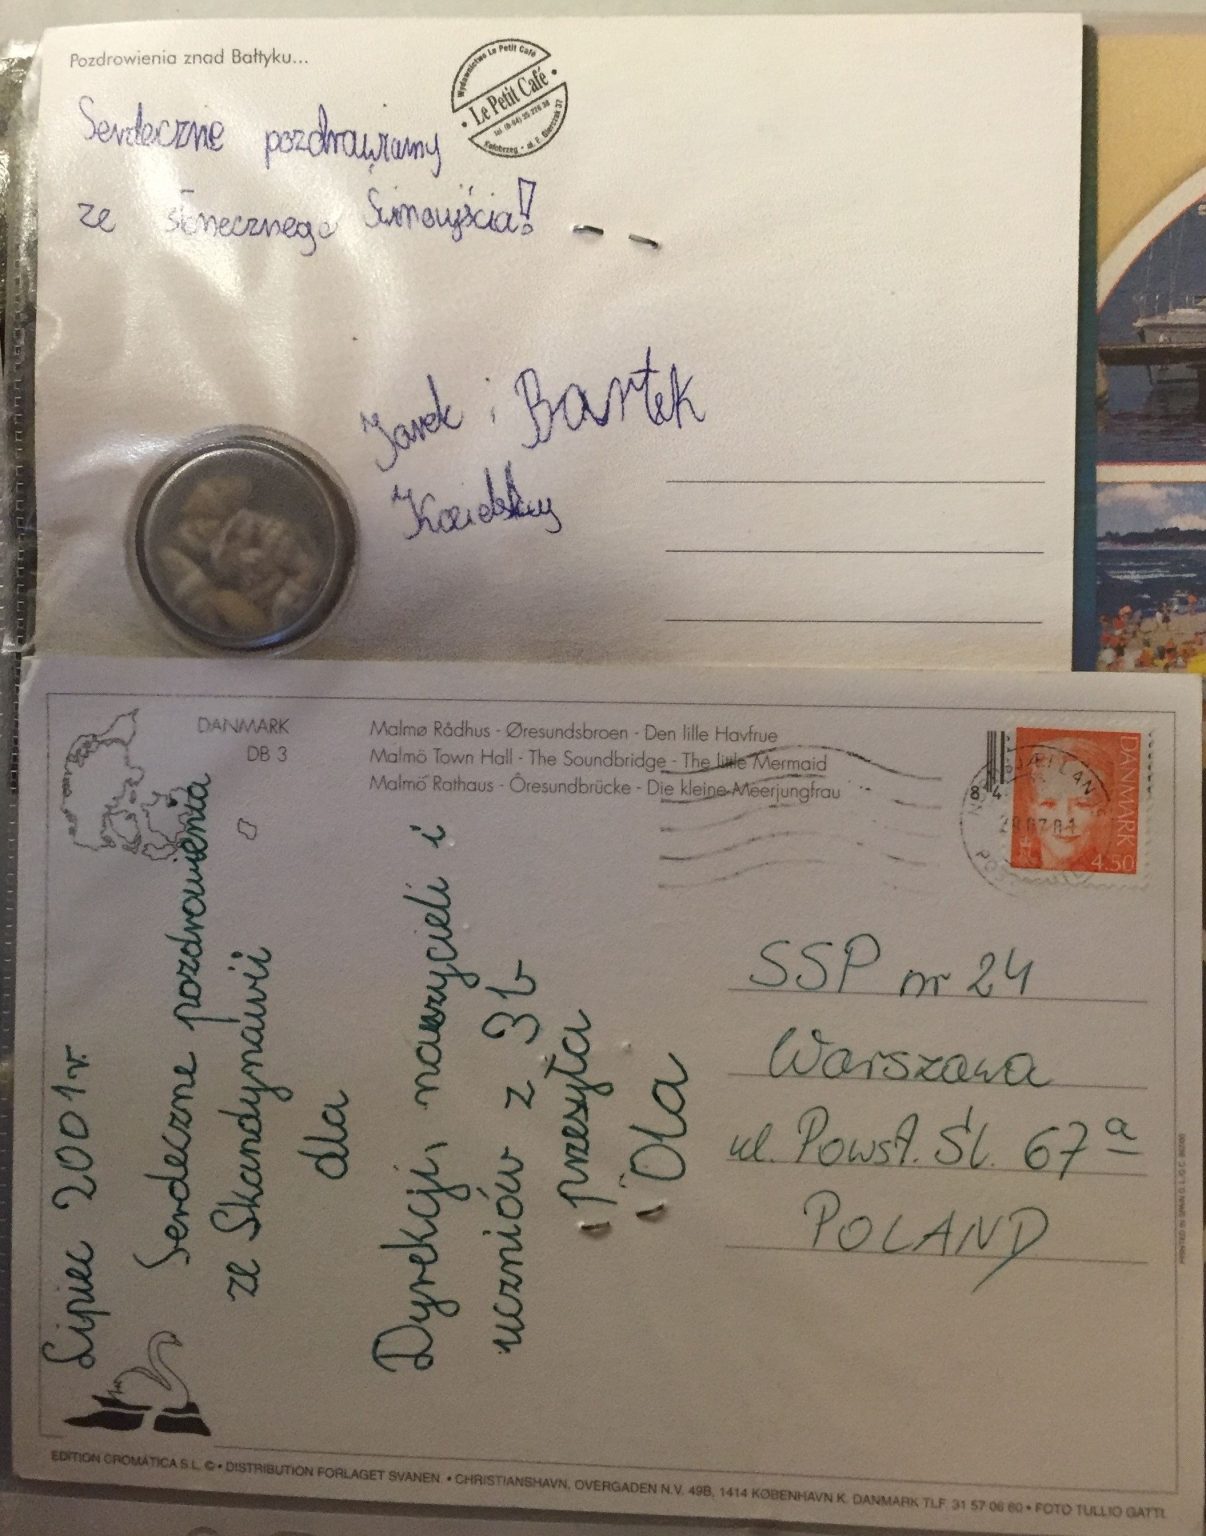 Pozdrowienia znad Bałtyku...
Wydawnictwo Le Petit Café
• Le Petit Café •
Kołobrzeg
Serdecznie pozdrawiamy
ze słonecznego Świnoujścia!
Jarek i Bartek
DANMARK
DB 3
Malmø Rådhus - Øresundsbroen - Den lille Havfrue
Malmö Town Hall - The Soundbridge - The little Mermaid
Malmö Rathaus - Öresundbrücke - Die kleine Meerjungfrau
DANMARK
4.50
Lipiec 2001 r.
Serdeczne pozdrowienia
ze Skandynawii
dla
Dyrekcji, nauczycieli i
uczniów z 3b
przesyła
Ola
SSP nr 24
Warszawa
ul. Powst. Śl. 67a
POLAND
EDITION CROMÁTICA S.L. © • DISTRIBUTION FORLAGET SVANEN. • CHRISTIANSHAVN, OVERGADEN N.V. 49B, 1414 KØBENHAVN K. DANMARK TLF. 31 57 06 60 • FOTO TULLIO GATTI